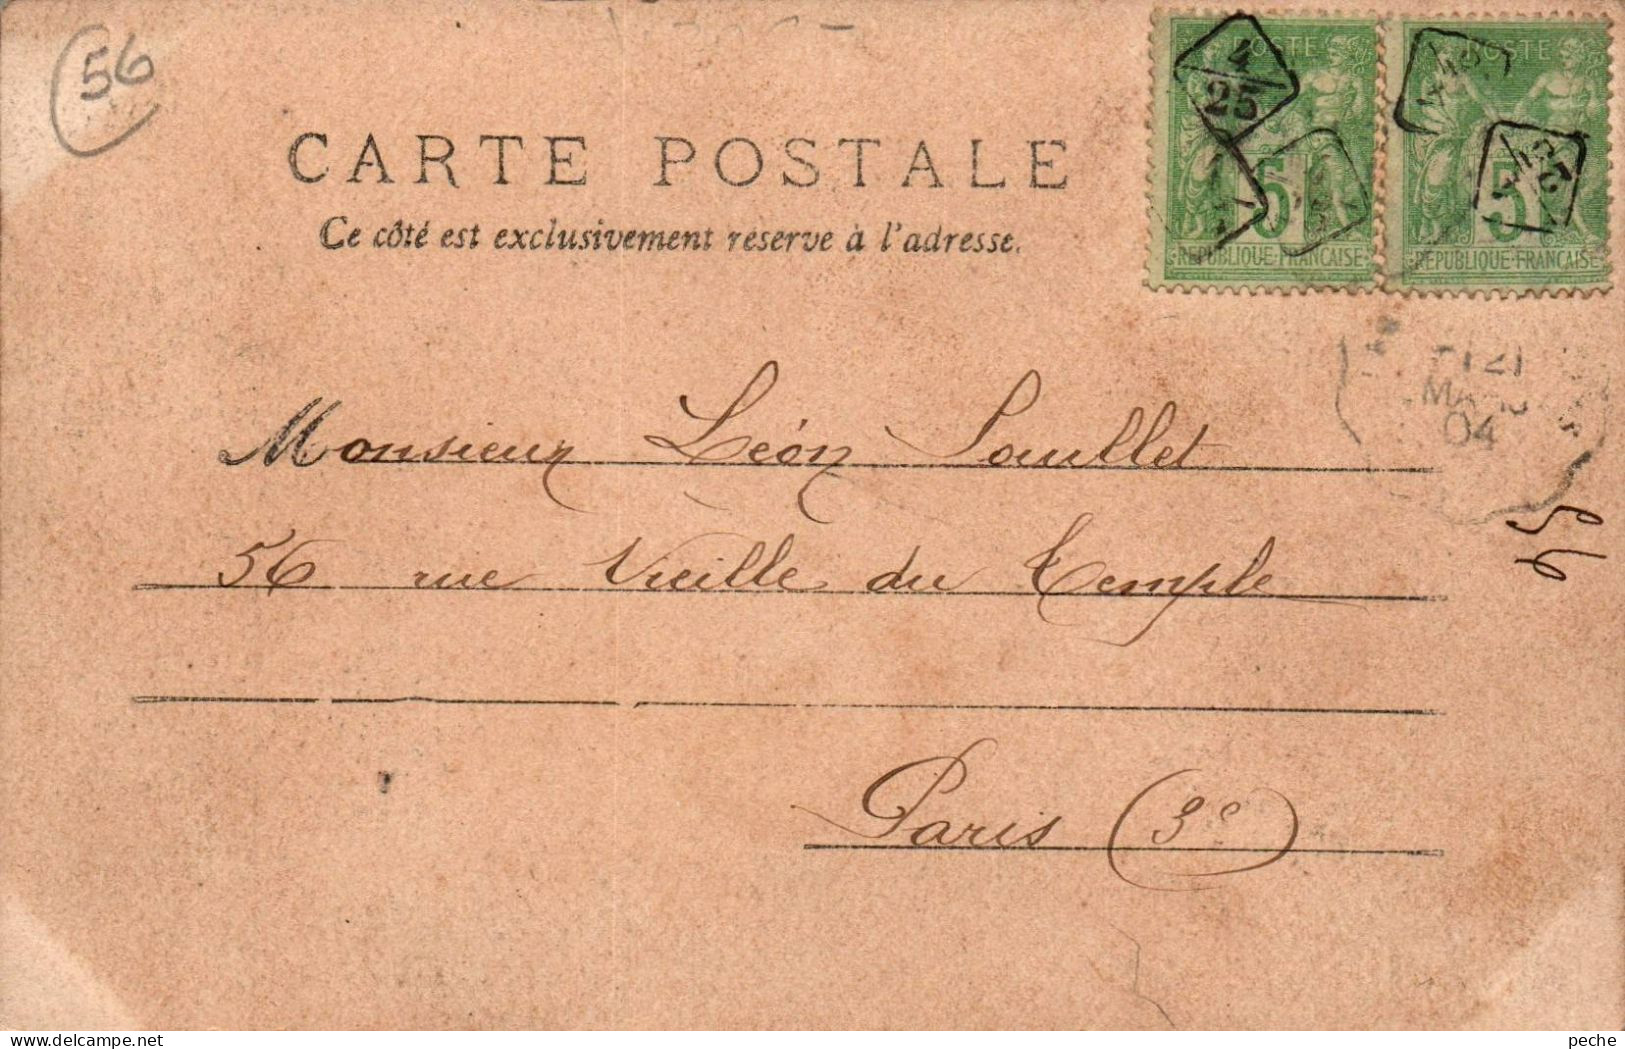 56
CARTE POSTALE
Ce côté est exclusivement réservé à l'adresse.
POSTE
4
25
5
REPUBLIQUE FRANÇAISE
POSTE
4
25
5
REPUBLIQUE FRANÇAISE
21
04
Monsieur Léon
56 rue Vieille du Temple
56
Paris (3e)
delcampe.net
peche